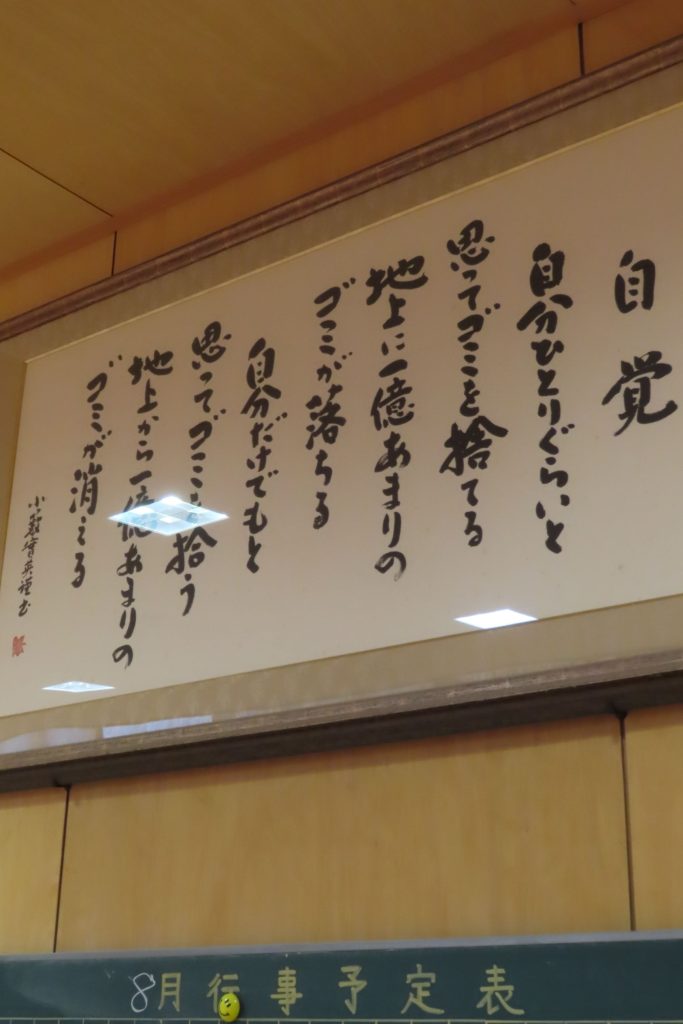 自覚
自分ひとりぐらいと
思ってゴミを捨てる
地上に一億あまりの
ゴミが落ちる
自分だけでもと
思ってゴミを拾う
地上から一億あまりの
ゴミが消える
8月行事予定表